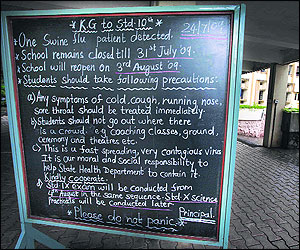 * K.G to Std-10th *
24/7/09
* One Swine flu patient detected.
* School remains closed till 31st July 09.
* School will reopen on 3rd August 09.
* Students should take following precautions:
a) Any symptoms of cold, cough, running nose,
sore throat should be treated immediately.
b) Students should not go out when there
is a crowd. eg coaching classes, ground,
ceremony and theatre etc.
c) This is a fast spreading, very contagious virus
It is our moral and social responsibility to
help State Health Department to contain it.
Kindly cooperate.
d) Std IX exam will be conducted from
4th August in the same sequence. Std X science
practicals will be conducted later
* Please do not panic *
Principal.